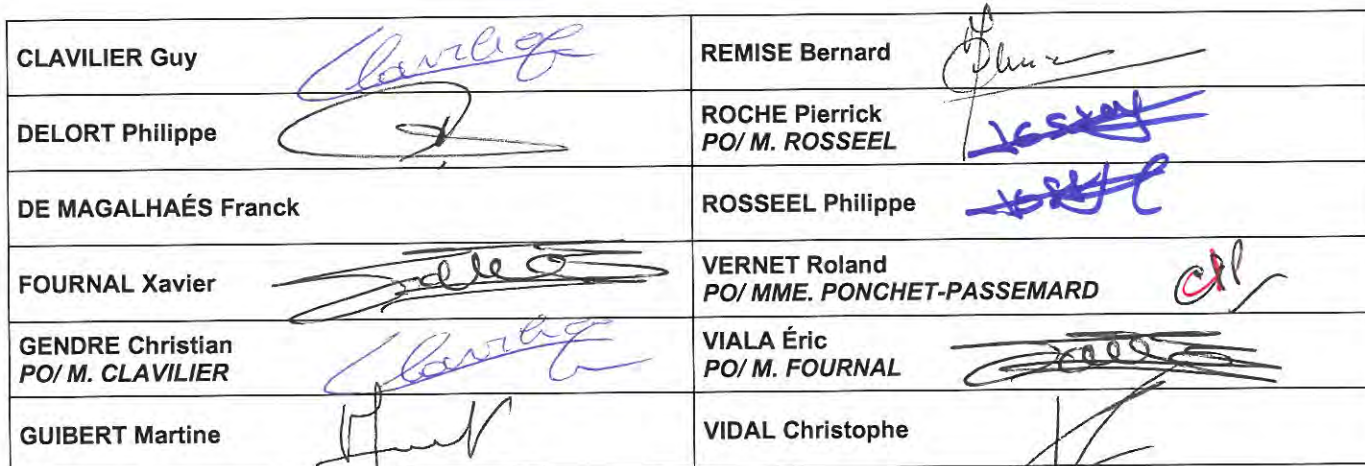 CLAVILIER Guy
Clavilier
REMISE Bernard
DELORT Philippe
ROCHE Pierrick
PO/ M. ROSSEEL
DE MAGALHAÉS Franck
ROSSEEL Philippe
FOURNAL Xavier
VERNET Roland
PO/ MME. PONCHET-PASSEMARD
GENDRE Christian
PO/ M. CLAVILIER
Clavilier
VIALA Éric
PO/ M. FOURNAL
GUIBERT Martine
VIDAL Christophe